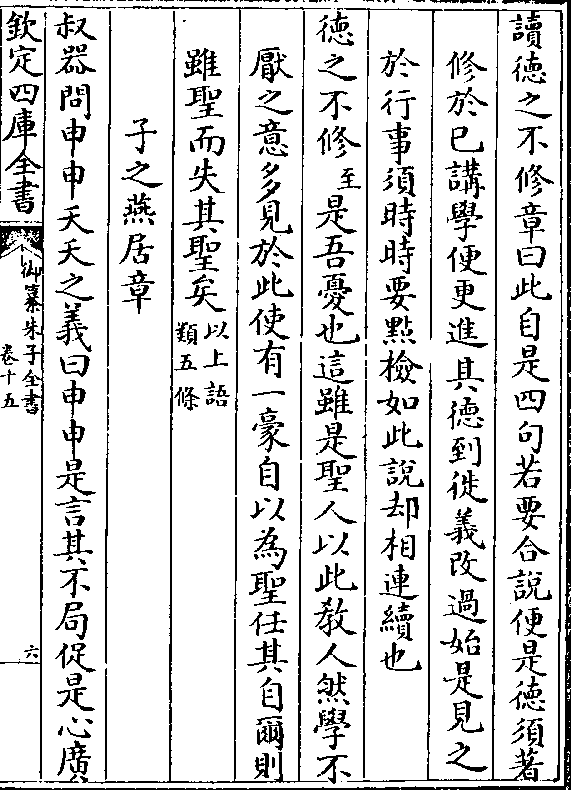 讀德之不修章曰此自是四句若要合說便是德須著
修於己講學便更進其德到徙義改過始是見之
於行事須時時要點檢如此說却相連續也
德之不修至是吾憂也這雖是聖人以此教人然學不
厭之意多見於此使有一豪自以為聖任其自爾則
雖聖而失其聖矣以上語類五條
子之燕居章
叔器問申申夭夭之義曰申申是言其不局促是心廣
欽定四庫全書
御纂朱子全書
卷十五
六